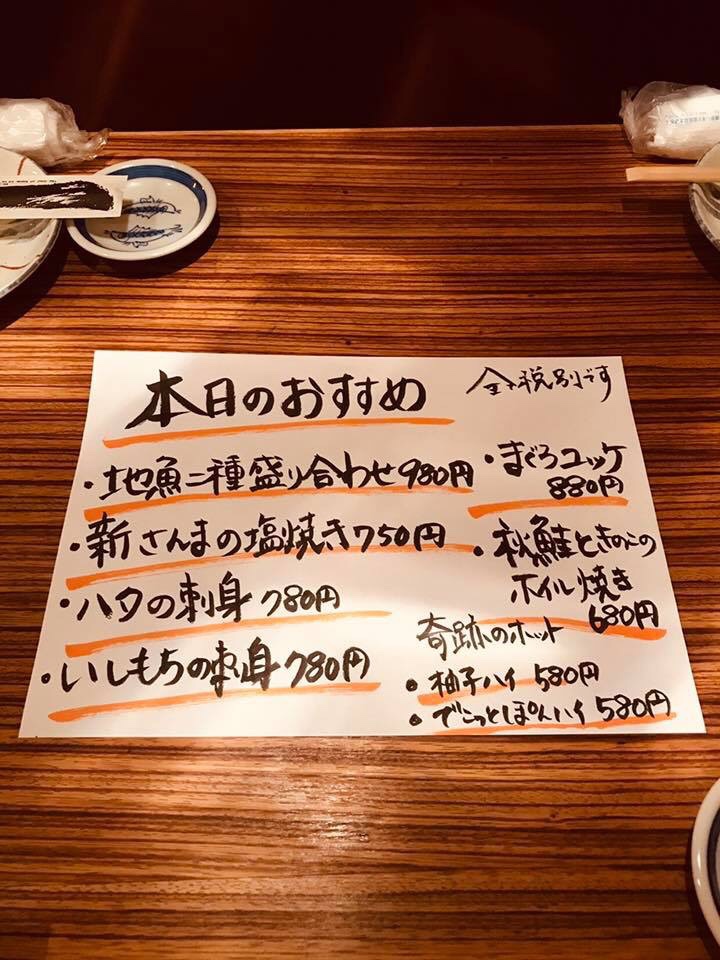 本日のおすすめ
全て税別です
・地魚二種盛り合わせ980円
・新さんまの塩焼き750円
・ハタの刺身 780円
・いしもちの刺身780円
・まぐろユッケ
880円
・秋鮭ときのこの
ホイル焼き
680円
奇跡のホット
・柚子ハイ 580円
・でこっとぽんハイ 580円